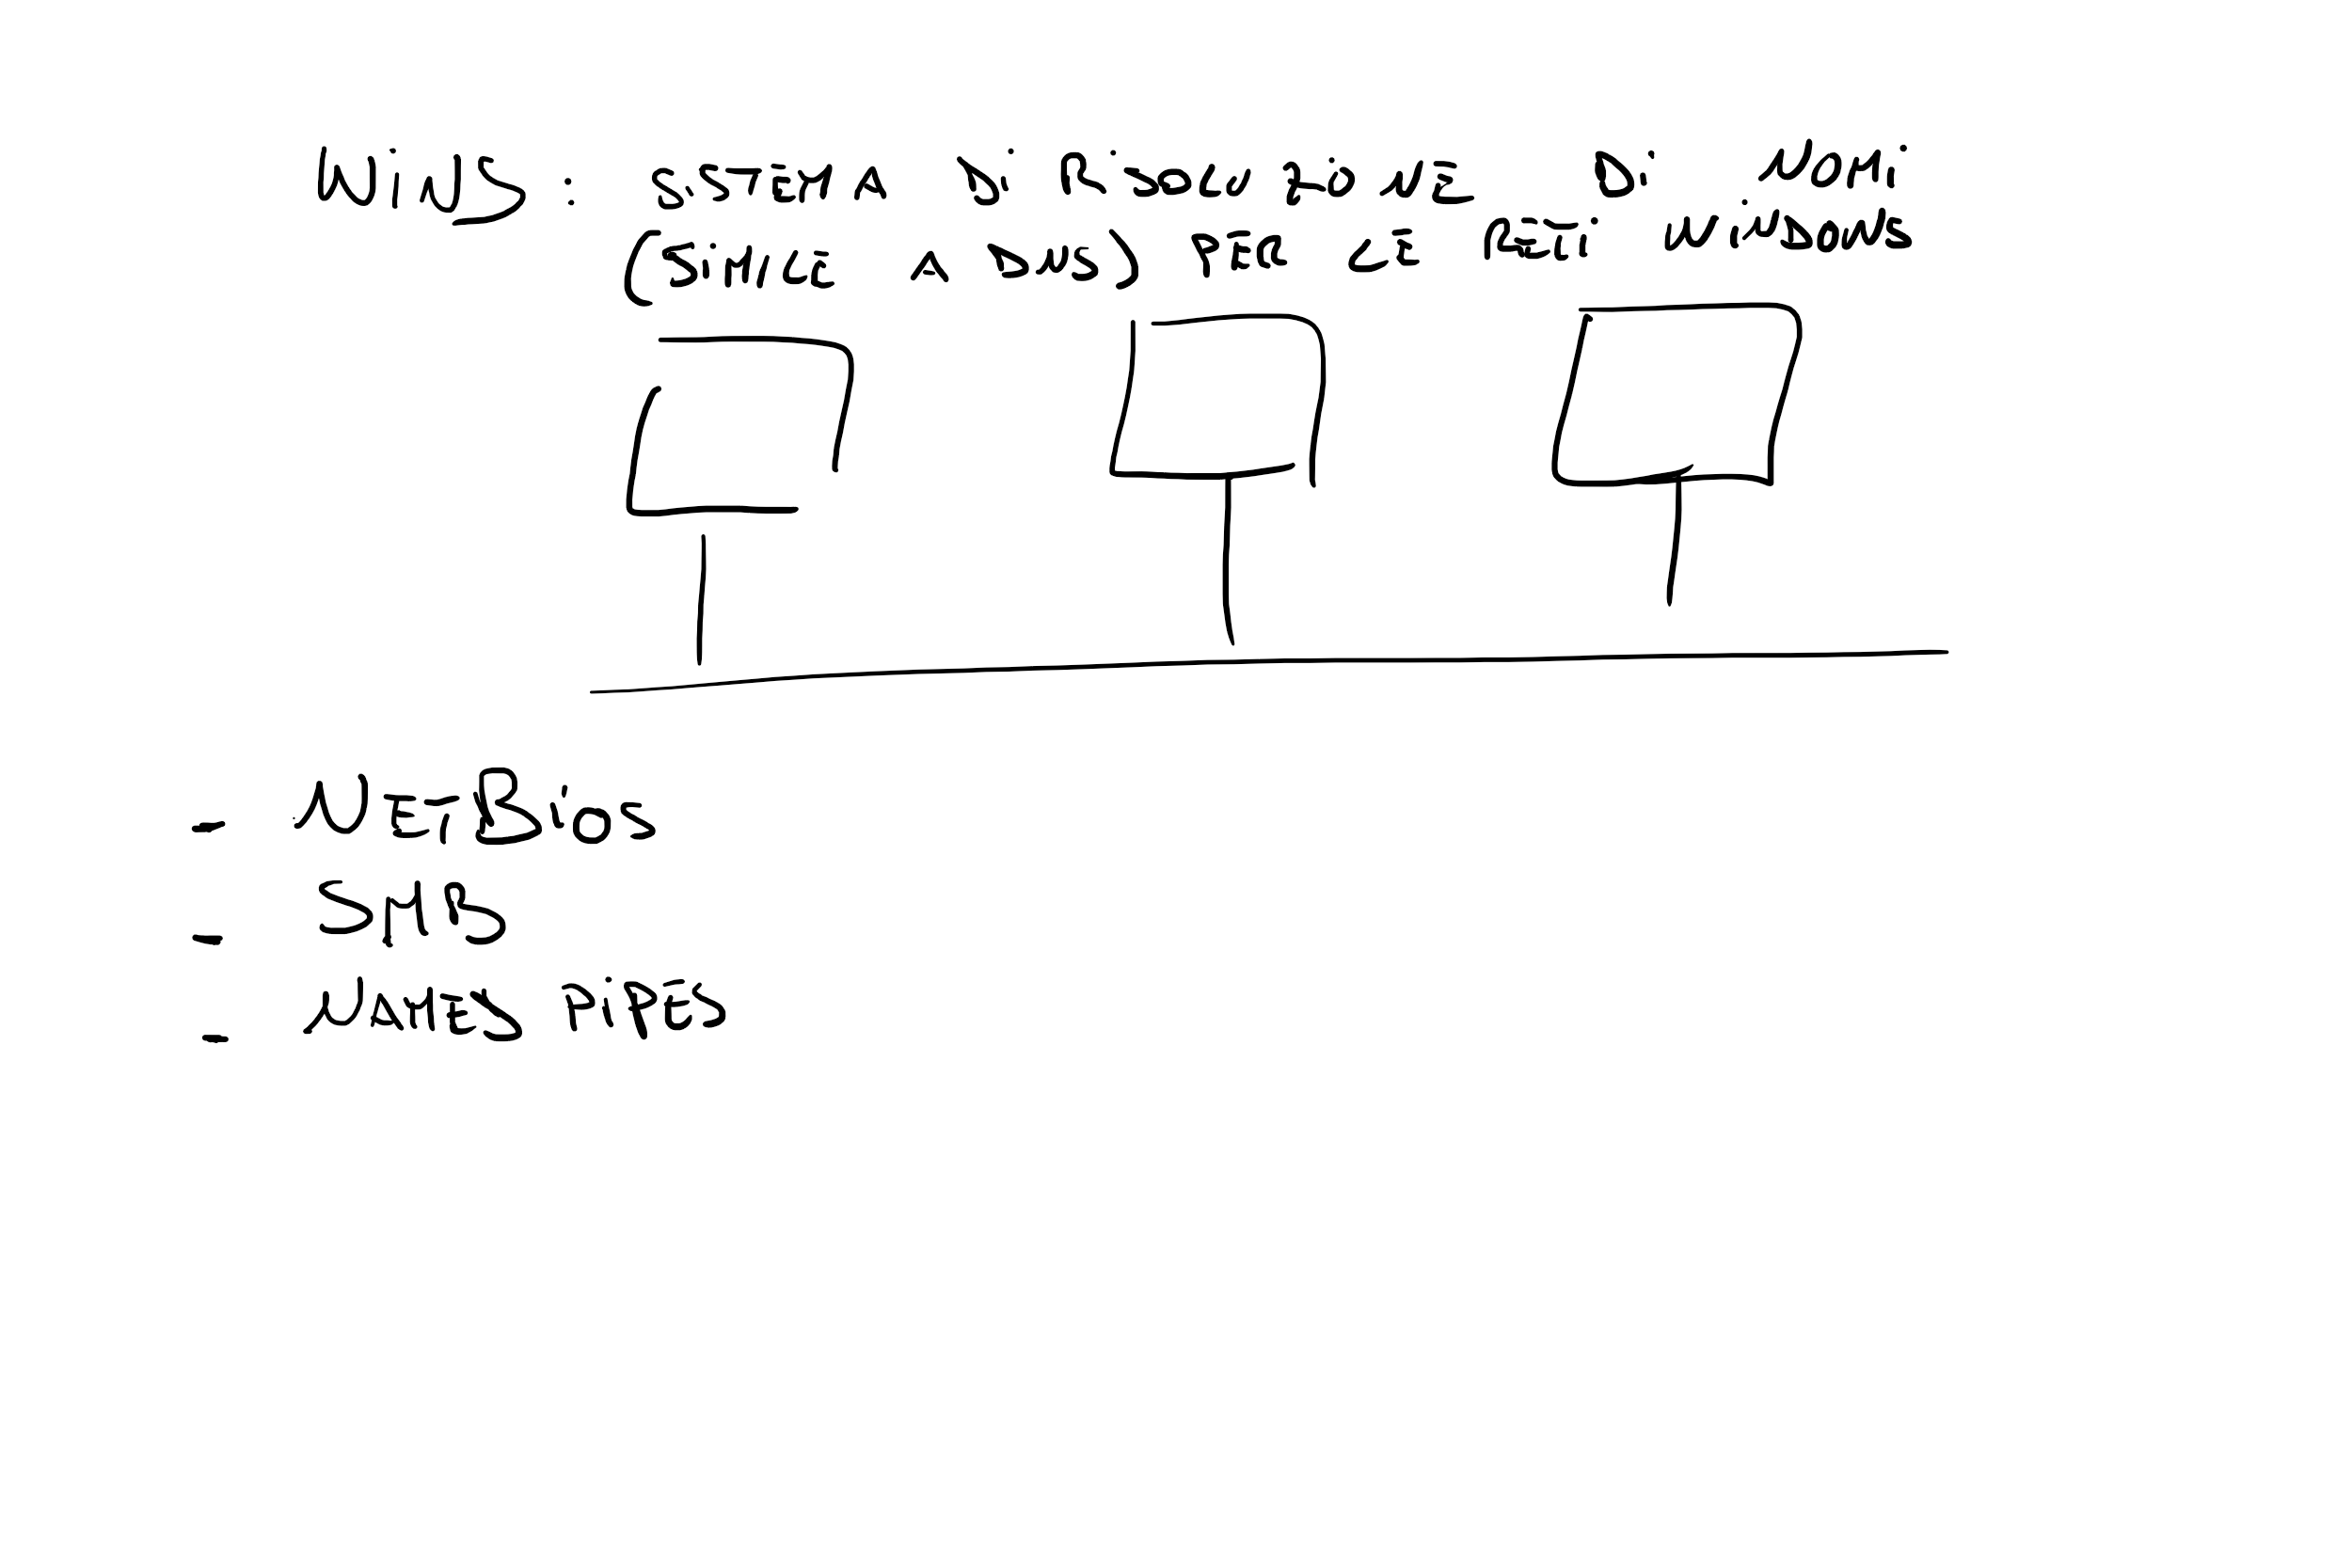 WINS: SISTEMA DI RISOLUZIONE DI NOMI
(SIMILE A DNS) PER LE RETI WINDOWS
- NETBIOS
- SMB
- NAMED PIPES